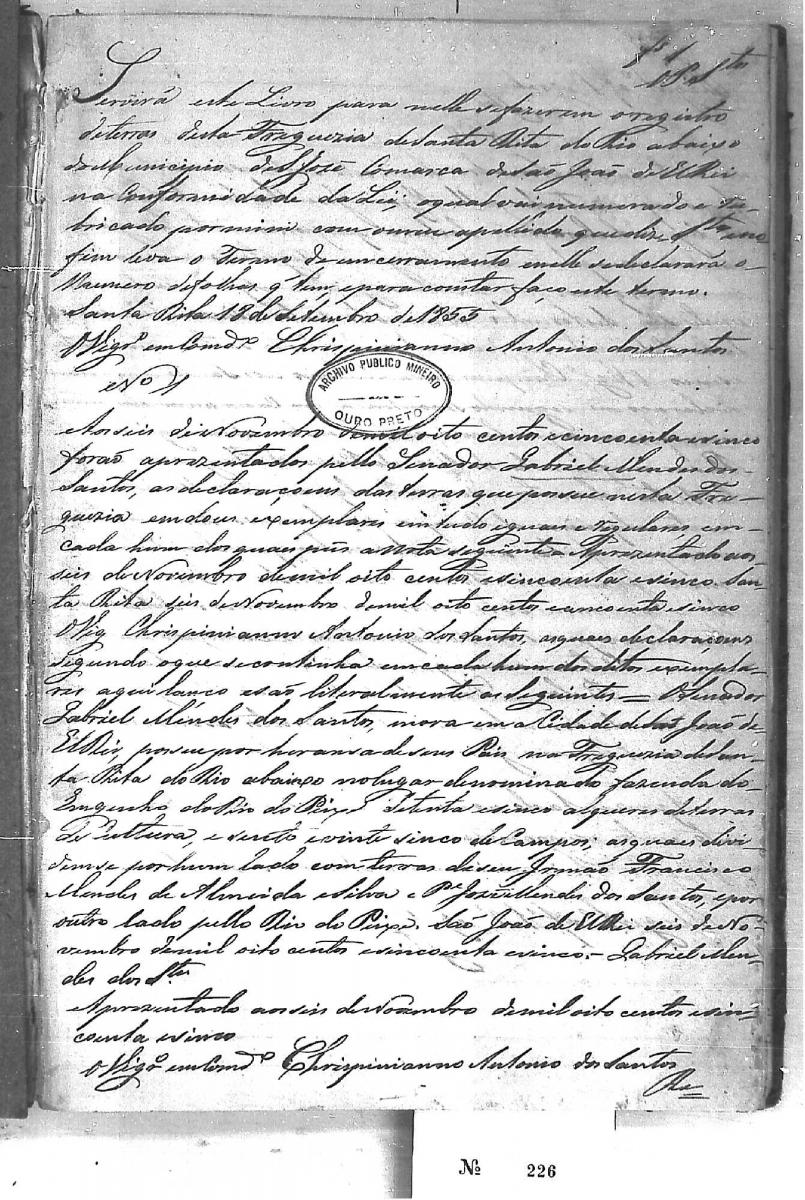 fs 1
Servirá este Livro para nelle se fazerem o registro
de terras desta Freguezia de Santa Rita do Rio abaixo
do Municipio de S José Comarca de São João de ElRei
na Conformidade da Lei, o qual vai numerado e ru-
bricado por mim com o meu apellido que diz Stos e no
fim leva o Termo de encerramento em elle se declarará o
Numero de folhas q' tem, e para constar faço este termo.
Santa Rita 18 de Setembro de 1855
O Vigrº emComdº Chrispinianno Antonio dos Santos
Nº 1
ARCHIVO PUBLICO MINEIRO
OURO PRETO
Aos seis de Novembro de mil oito centos e cincoenta e sinco
forão aprezentados pello Senador Gabriel Mendes dos
Santos, as declaraçoens das terras que possue nesta Fre-
guezia em dous exemplares em tudo iguaes e regulares, em
cada hum dos quaes pús a nota seguinte Aprezentado aos
seis de Novembro de mil oito centos e sincoenta e sinco. San-
ta Rita seis de Novembro de mil oito centos e sincoenta e sinco
O Vigº Chrispinianno Antonio dos Santos, as quaes declaraçoens
segundo o que se continha em cada hum dos ditos exempla-
res aqui lanço e são literalmente as seguintes = O Senador
Gabriel Mendes dos Santos, mora em a Cidade de São João de
ElRei, possue por heransa de seus Pais na Freguezia de San-
ta Rita do Rio abaixo no lugar denominado fazenda do
Engenho do Rio do Peixe Setenta e sinco alqueres de terras
de Cultura, e sento e vinte sinco de Campos; as quaes divi-
dem se por hum lado com terras de seu Irmão Francisco
Mendes de Almeida e Silva e Pe José Mendes dos Santos, e por
outro lado pello Rio do Peixe. São João de ElRei seis de No-
vembro de mil oito centos e sincoenta e sinco. - Gabriel Men-
des dos Stos
Aprezentado aos seis de Novembro de mil oito centos e sin-
coenta e sinco
O Vigrº emComdº Chrispinianno Antonio dos Santos
Nº 226